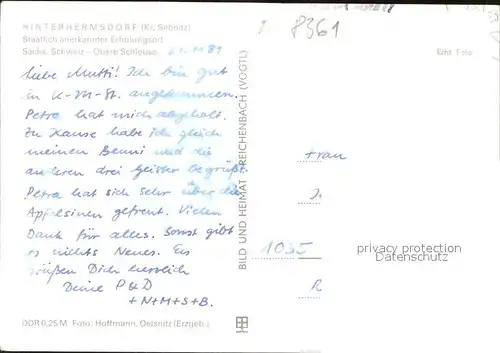 HINTERHERMSDORF (Kr. Sebnitz)
Staatlich anerkannter Erholungsort
Sächs. Schweiz – Obere Schleuse
8361
Echt Foto
Liebe Mutti! Ich bin gut
in K-M-St. angekommen.
Petra hat mich abgeholt.
Zu Hause habe ich gleich
meinen Benni und die
anderen drei Geister begrüßt.
Petra hat sich sehr über die
Apfelsinen gefreut. Vielen
Dank für alles. Sonst gibt
es nichts Neues. Es
grüßen Dich herzlich
Deine P&D
+N+M+S+B.
BILD UND HEIMAT REICHENBACH (VOGTL)
Frau
1035
privacy protection
Datenschutz
R
DDR 0,25 M Foto: Hoffmann, Oelsnitz (Erzgeb.)